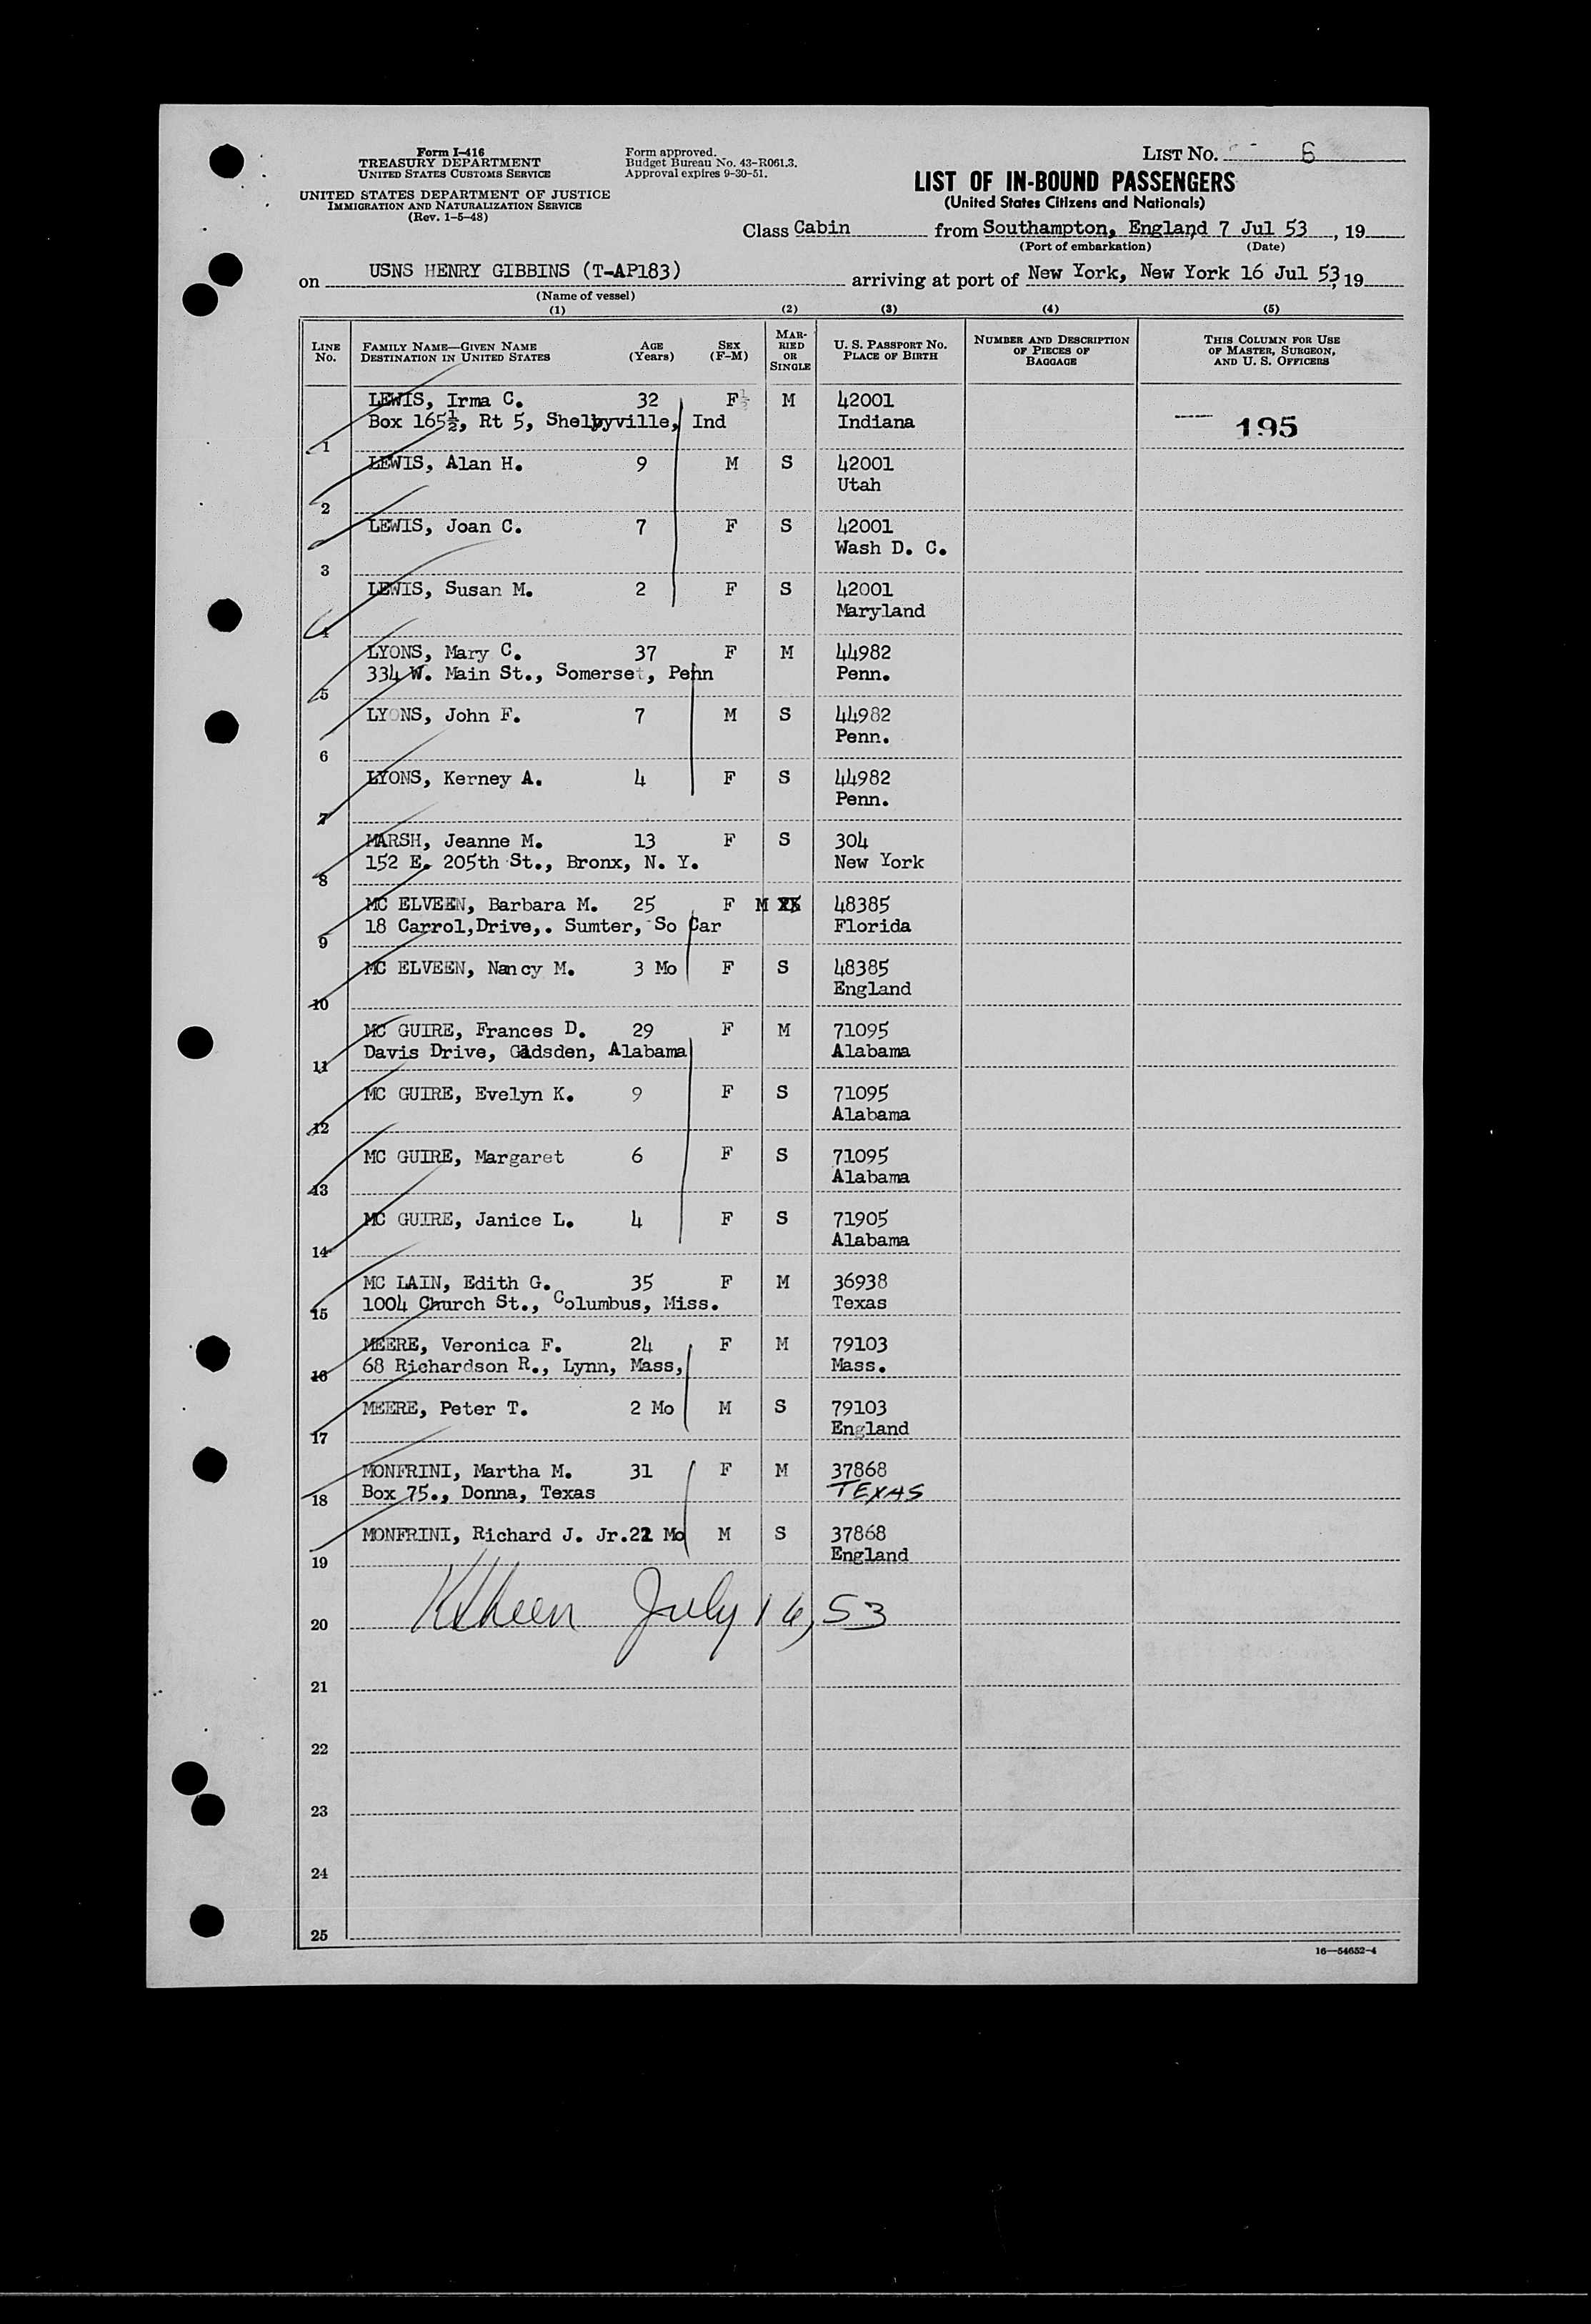 Form I-416
TREASURY DEPARTMENT
UNITED STATES CUSTOMS SERVICE
UNITED STATES DEPARTMENT OF JUSTICE
IMMIGRATION AND NATURALIZATION SERVICE
(Rev. 1-5-48)
Form approved.
Budget Bureau No. 43-R061.3.
Approval expires 9-30-51.
LIST No. 6
LIST OF IN-BOUND PASSENGERS
(United States Citizens and Nationals)
Class Cabin from Southampton, England 7 Jul 53, 19
(Port of embarkation) (Date)
on USNS HENRY GIBBINS (T-AP183) arriving at port of New York, New York 16 Jul 53, 19
(Name of vessel)
(1) (2) (3) (4) (5)
LINE No. FAMILY NAME—GIVEN NAME DESTINATION IN UNITED STATES AGE (Years) SEX (F-M) MARRIED OR SINGLE U. S. PASSPORT No. PLACE OF BIRTH NUMBER AND DESCRIPTION OF PIECES OF BAGGAGE THIS COLUMN FOR USE OF MASTER, SURGEON, AND U. S. OFFICERS
LEWIS, Irma C. 32 F M 42001
Box 165½, Rt 5, Shelbyville, Ind Indiana 195
1
LEWIS, Alan H. 9 M S 42001
Utah
2
LEWIS, Joan C. 7 F S 42001
Wash D. C.
3
LEWIS, Susan M. 2 F S 42001
Maryland
4
LYONS, Mary C. 37 F M 44982
334 W. Main St., Somerset, Penn Penn.
5
LYONS, John F. 7 M S 44982
Penn.
6
LYONS, Kerney A. 4 F S 44982
Penn.
7
MARSH, Jeanne M. 13 F S 304
152 E. 205th St., Bronx, N. Y. New York
8
MC ELVEEN, Barbara M. 25 F M 48385
18 Carrol,Drive,. Sumter, So Car Florida
9
MC ELVEEN, Nancy M. 3 Mo F S 48385
England
10
MC GUIRE, Frances D. 29 F M 71095
Davis Drive, Gadsden, Alabama Alabama
11
MC GUIRE, Evelyn K. 9 F S 71095
Alabama
12
MC GUIRE, Margaret 6 F S 71095
Alabama
13
MC GUIRE, Janice L. 4 F S 71905
Alabama
14
MC LAIN, Edith G. 35 F M 36938
1004 Church St., Columbus, Miss. Texas
15
MEERE, Veronica F. 24 F M 79103
68 Richardson R., Lynn, Mass, Mass.
16
MEERE, Peter T. 2 Mo M S 79103
England
17
MONFRINI, Martha M. 31 F M 37868
Box 75., Donna, Texas TEXAS
18
MONFRINI, Richard J. Jr. Mo M S 37868
England
19
July 16, 53
20
21
22
23
24
25
16—54652-4